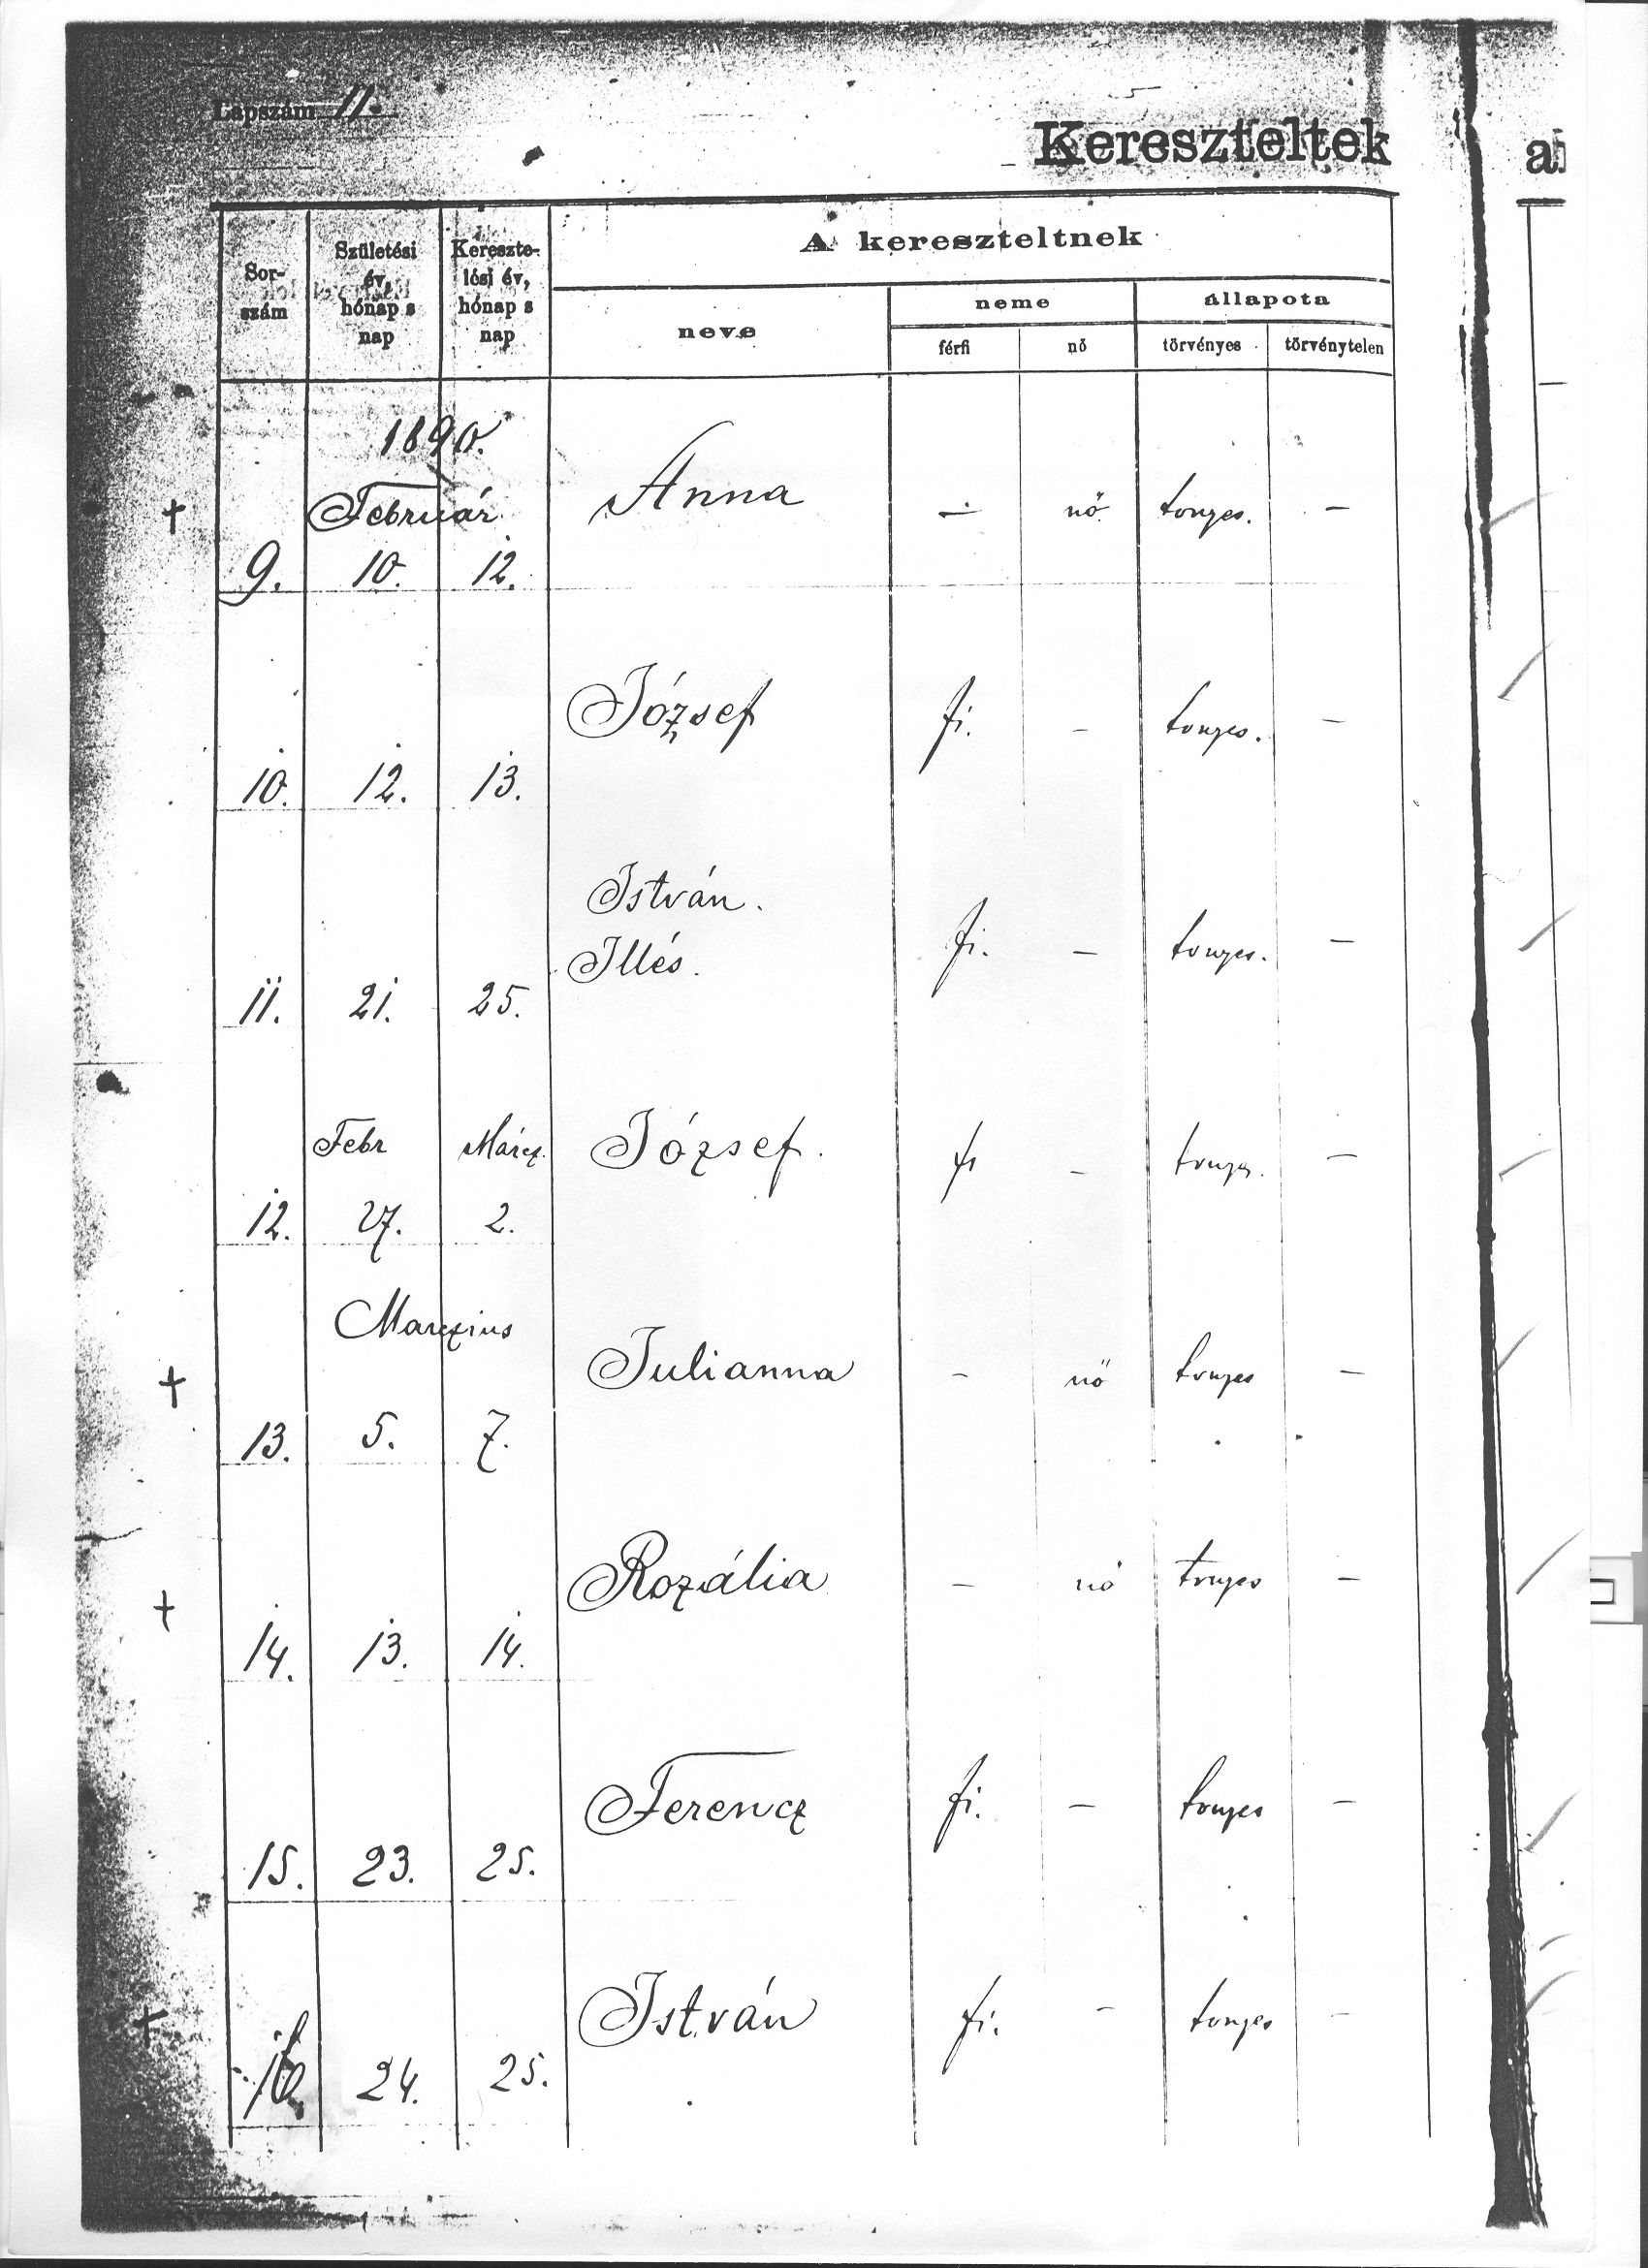 Lapszám 11.
Kereszteltek
Sor-
szám
Születési
év,
hónap s
nap
Kereszte-
lési év,
hónap s
nap
A kereszteltnek
neve
neme
állapota
férfi
nő
törvényes
törvénytelen
1890.
Február
9. 10. 12. Anna — nő tvnyes. —
10. 12. 13. József fi. — tvnyes. —
István.
11. 21. 25. Illés. fi. — tvnyes. —
Febr Márcz.
12. 27. 2. József. fi — tvnyes. —
Marczius
13. 5. 7. Julianna — nő tvnyes —
14. 13. 14. Rozália — nő tvnyes —
15. 23. 25. Ferencz fi. — tvnyes —
16. 24. 25. István fi. — tvnyes —